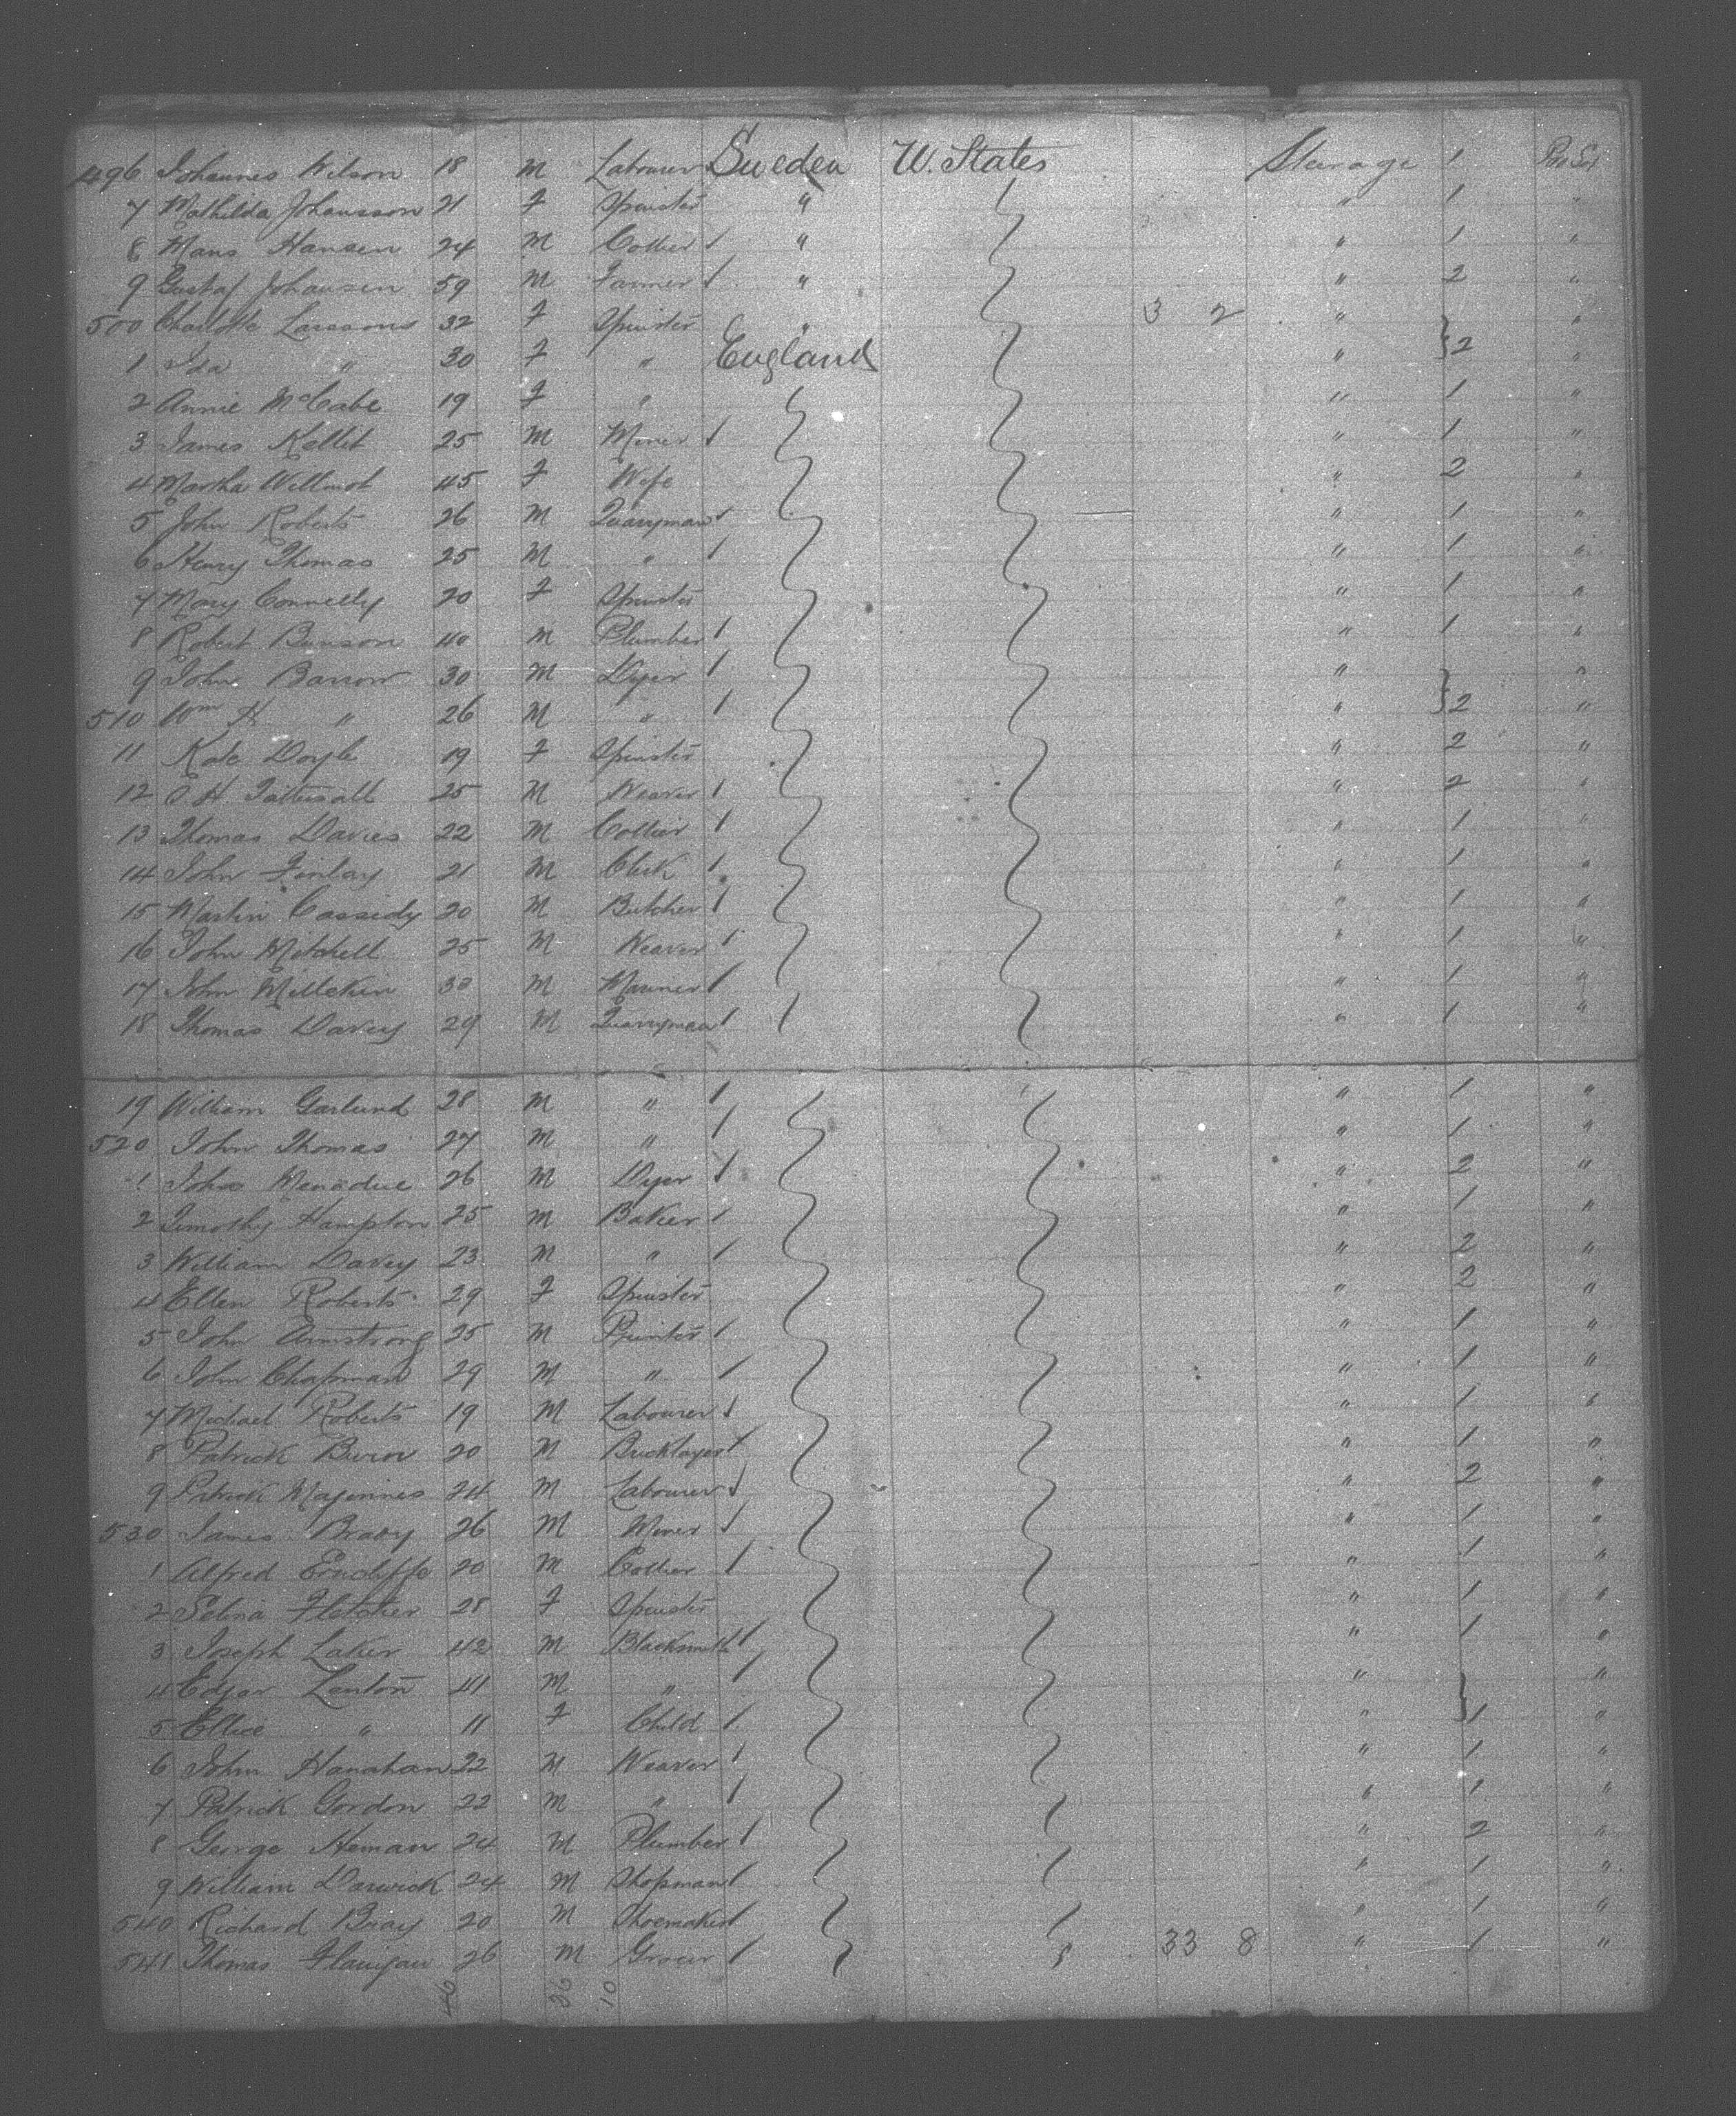 496 Johannes Wilson 18 M Labourer Sweden U. States Steerage 1
7 Mathilda Johansson 21 F Spinster " " 1 "
8 Hans Hansen 24 M Collier / " " 1 "
9 Gustaf Johansen 59 M Farmer / " " 2 "
500 Charlotte Larssons 32 F Spinster " 3 2 " "
1 Ida " 30 F " England " } 2 "
2 Annie McCabe 19 F " " 1 "
3 James Kellet 25 M Miner / " 1 "
4 Martha Willmot 45 F Wife " 2 "
5 John Roberts 26 M Quarryman / " 1 "
6 Henry Thomas 25 M " / " 1 "
7 Mary Connelly 20 F Spinster " 1 "
8 Robert Bunson 40 M Plumber / " 1 "
9 John Barrow 30 M Dyer / " "
510 Wm H " 26 M " / " } 2 "
11 Kate Doyle 19 F Spinster " 2 "
12 Tattersall 25 M Weaver / " 2 "
13 Thomas Davies 22 M Collier / " 1 "
14 John Finlay 21 M Clerk / " 1 "
15 Martin Cassidy 20 M Butcher / " 1 "
16 John Mitchell 25 M Weaver / " 1 "
17 John Millekin 30 M Mariner / " 1 "
18 Thomas Davey 29 M Quarryman / " 1 "
19 William Garland 28 M " / " 1 "
520 John Thomas 27 M " / " 1 "
1 John Menadue 26 M Dyer / " 2 "
2 Timothy Hampton 25 M Baker / " 1 "
3 William Davey 23 M " / " 2 "
4 Ellen Roberts 29 F Spinster " 2 "
5 John Armstrong 25 M Printer / " 1 "
6 John Chapman 29 M " / " 1 "
7 Michael Roberts 19 M Labourer / " 1 "
8 Patrick 20 M Bricklayer / " 1 "
9 Patrick Maginnes 24 M Labourer / " 2 "
530 James Brady 26 M Miner / " 1 "
1 Alfred 20 M Collier / " 1 "
2 Selina Fletcher 28 F Spinster " 1 "
3 Joseph Laker 42 M Blacksmith / " 1 "
4 Edgar Lenton 41 M " / " "
5 Ellice " 11 F Child / " } 1 "
6 John Hanahan 22 M Weaver / " 1 "
7 Patrick Gordon 22 M " / " 1 "
8 George Heman 24 M Plumber / " 2 "
9 William Darwick 24 M Shopman / " 1 "
540 Richard Bray 20 M Shoemaker / " 1 "
541 Thomas Flanigan 26 M Grocer / 33 8 " 1 "
46 36 10